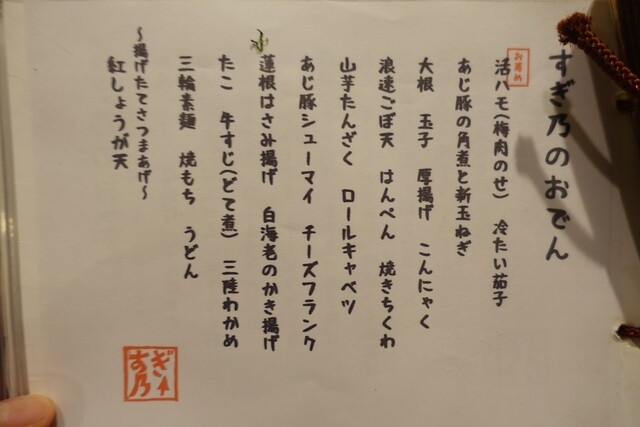 すぎ乃のおでん
お薦め
活ハモ(梅肉のせ) 冷たい茄子
あじ豚の角煮と新玉ねぎ
大根 玉子 厚揚げ こんにゃく
浪速ごぼ天 はんぺん 焼きちくわ
山芋たんざく ロールキャベツ
あじ豚シューマイ チーズフランク
蓮根はさみ揚げ 白海老のかき揚げ
たこ 牛すじ(どて煮) 三陸わかめ
三輪素麺 焼もち うどん
～揚げたてさつまあげ～
紅しょうが天
すぎ乃